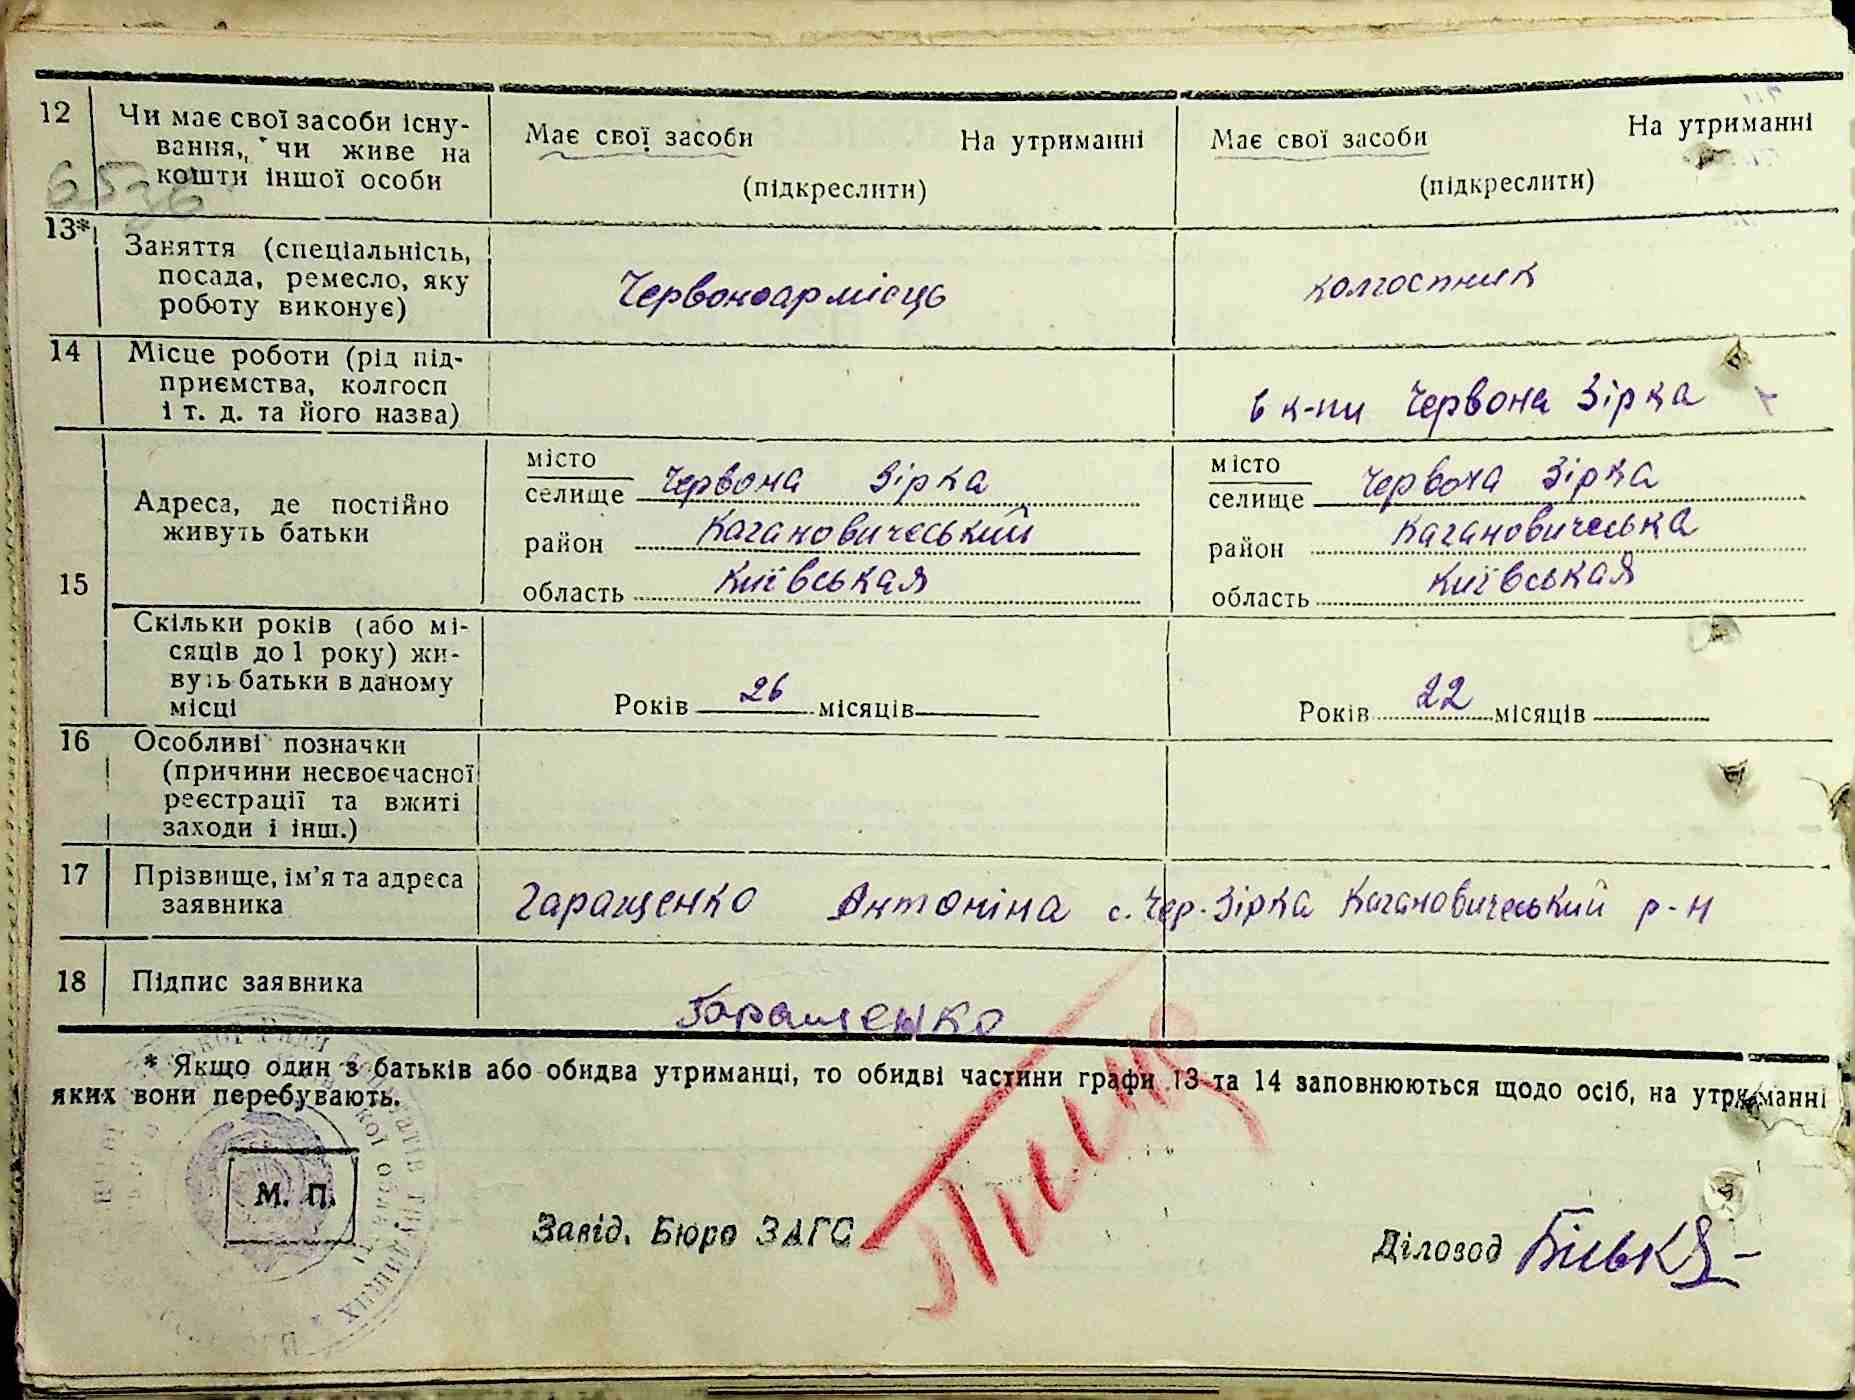 12 Чи має свої засоби існу-
вання, чи живе на
кошти іншої особи
Має свої засоби На утриманні
(підкреслити)
Має свої засоби На утриманні
(підкреслити)
6536
13* Заняття (спеціальність,
посада, ремесло, яку
роботу виконує)
Червоноармієць
колгоспник
14 Місце роботи (рід під-
приємства, колгосп
і т. д. та його назва)
в к-пи Червона Зірка
15
Адреса, де постійно
живуть батьки
місто
селище Червона Зірка
район Кагановичеський
область Київськая
місто
селище Червона Зірка
район Кагановичеська
область Київськая
Скільки років (або мі-
сяців до 1 року) жи-
вуть батьки в даному
місці
Років 26 місяців
Років 22 місяців
16 Особливі позначки
(причини несвоєчасної
реєстрації та вжиті
заходи і інш.)
17 Прізвище, ім'я та адреса
заявника
Гаращенко Антоніна с. Чер. Зірка Кагановичеський р-н
18 Підпис заявника
Гаращенко
* Якщо один з батьків або обидва утриманці, то обидві частини графи 13 та 14 заповнюються щодо осіб, на утриманні
яких вони перебувають.
М. П.
Завід. Бюро ЗАГС
Діловод